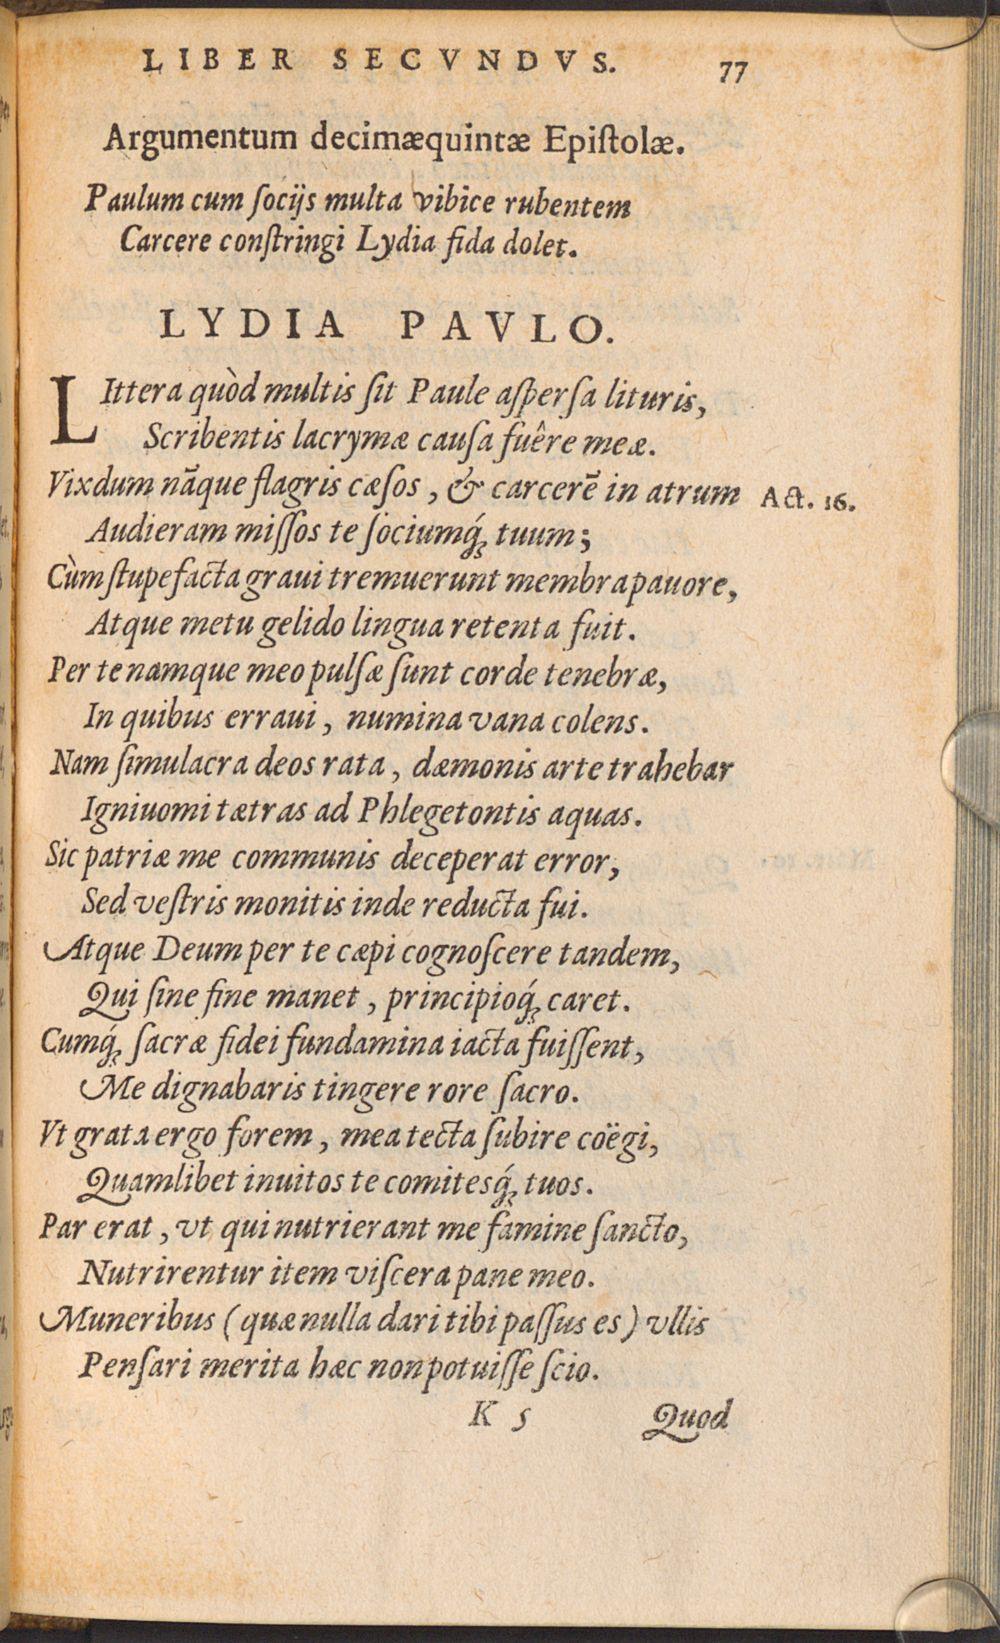 LIBER SECVNDVS. 77
Argumentum decimæquintæ Epiſtolæ.
Paulum cum ſocijs multa vibice rubentem
Carcere conſtringi Lydia fida dolet.
LYDIA PAVLO.
LIttera quòd multis ſit Paule aſperſa lituris,
Scribentis lacrymæ cauſa fuêre meæ.
Vixdum nāque flagris cæſos, & carcerē in atrum
Act. 16.
Audieram miſſos te ſociumq́; tuum;
Cùm ſtupefacta graui tremuerunt membra pauore,
Atque metu gelido lingua retenta fuit.
Per te namque meo pulſæ ſunt corde tenebræ,
In quibus erraui, numina vana colens.
Nam ſimulacra deos rata, dæmonis arte trahebar
Igniuomi tætras ad Phlegetontis aquas.
Sic patriæ me communis deceperat error,
Sed veſtris monitis inde reducta fui.
Atque Deum per te cæpi cognoſcere tandem,
Qui ſine fine manet, principioq́; caret.
Cumq́; ſacræ fidei fundamina iacta fuiſſent,
Me dignabaris tingere rore ſacro.
Vt grata ergo forem, mea tecta ſubire coëgi,
Quamlibet inuitos te comitesq́; tuos.
Par erat, vt qui nutrierant me famine ſancto,
Nutrirentur item viſcera pane meo.
Muneribus (quæ nulla dari tibi paſſus es) vllis
Penſari merita hæc non potuiſſe ſcio.
K 5 Quod